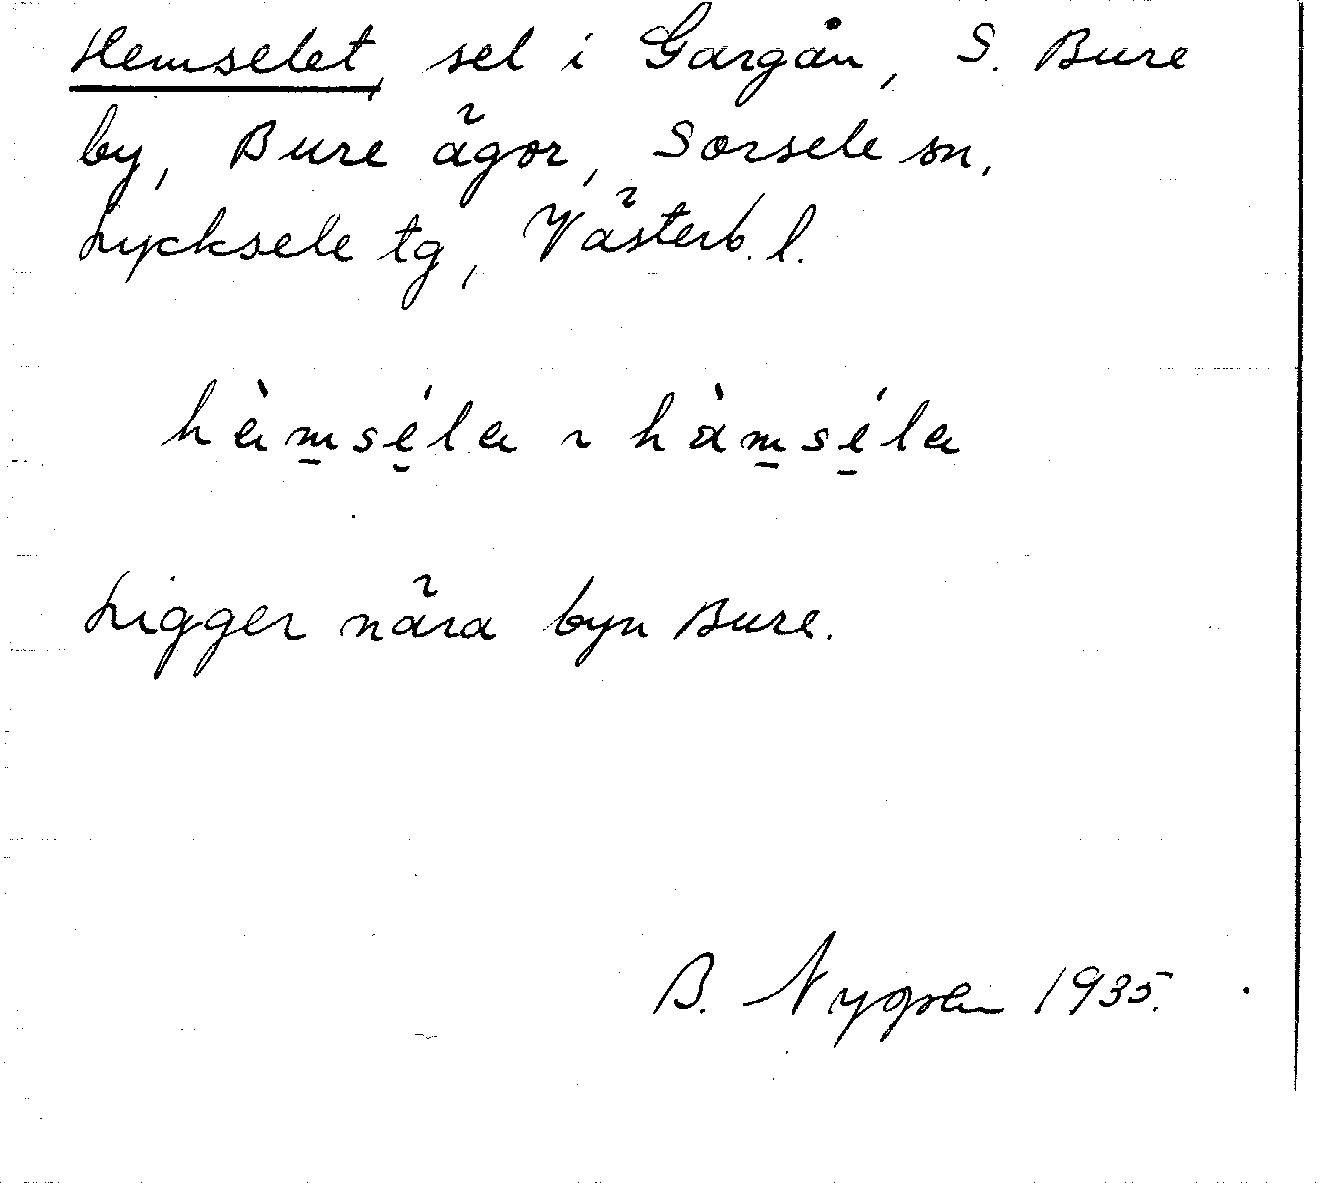 Hemselet, sel i Gargån, S. Bure
by, Bure ägor, Sorsele sn,
Lycksele tg, Västerb. l.
hàm̲sé̱la ~ hàm̲sé̱la
Ligger nära byn Bure.
B. Nygren 1935.